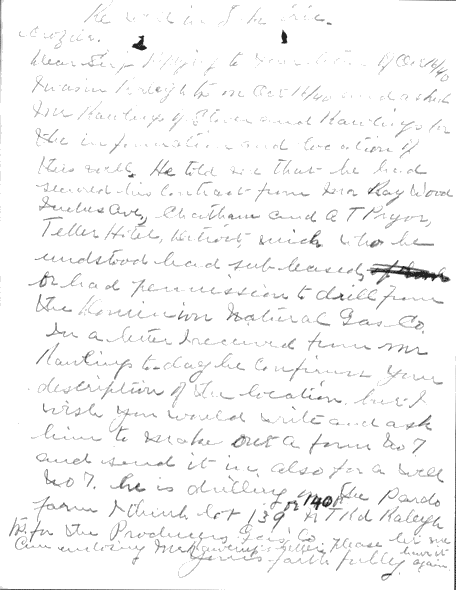 Dear Sir Replying to your letter of Oct 14/40
I was in Raleigh Tp on Oct 16/40 and asked
Mr Rawlings of Glover and Rawlings for
the information and location of
this well. He told me that he had
secured his contract from Mr Ray Wood
Ave, Chatham and A T Pryor,
Teller Hotel, Detroit Mich who he
undstood had subleased
or had permission to drill from
the Dominion Natural Gas Co.
In a letter I received from Mr
Rawlings to day he confirms your
description of the location but I
wish you would write and ask
him to make out a form No 7
and send it in also for a well
No 7. he is drilling on the Pardo
farm I think lot 139 or 140 Rd Raleigh
Tp for the Producers Gas Co. Please let me
have it again
am enclosing Mr Rawlings letter
Yours faithfully